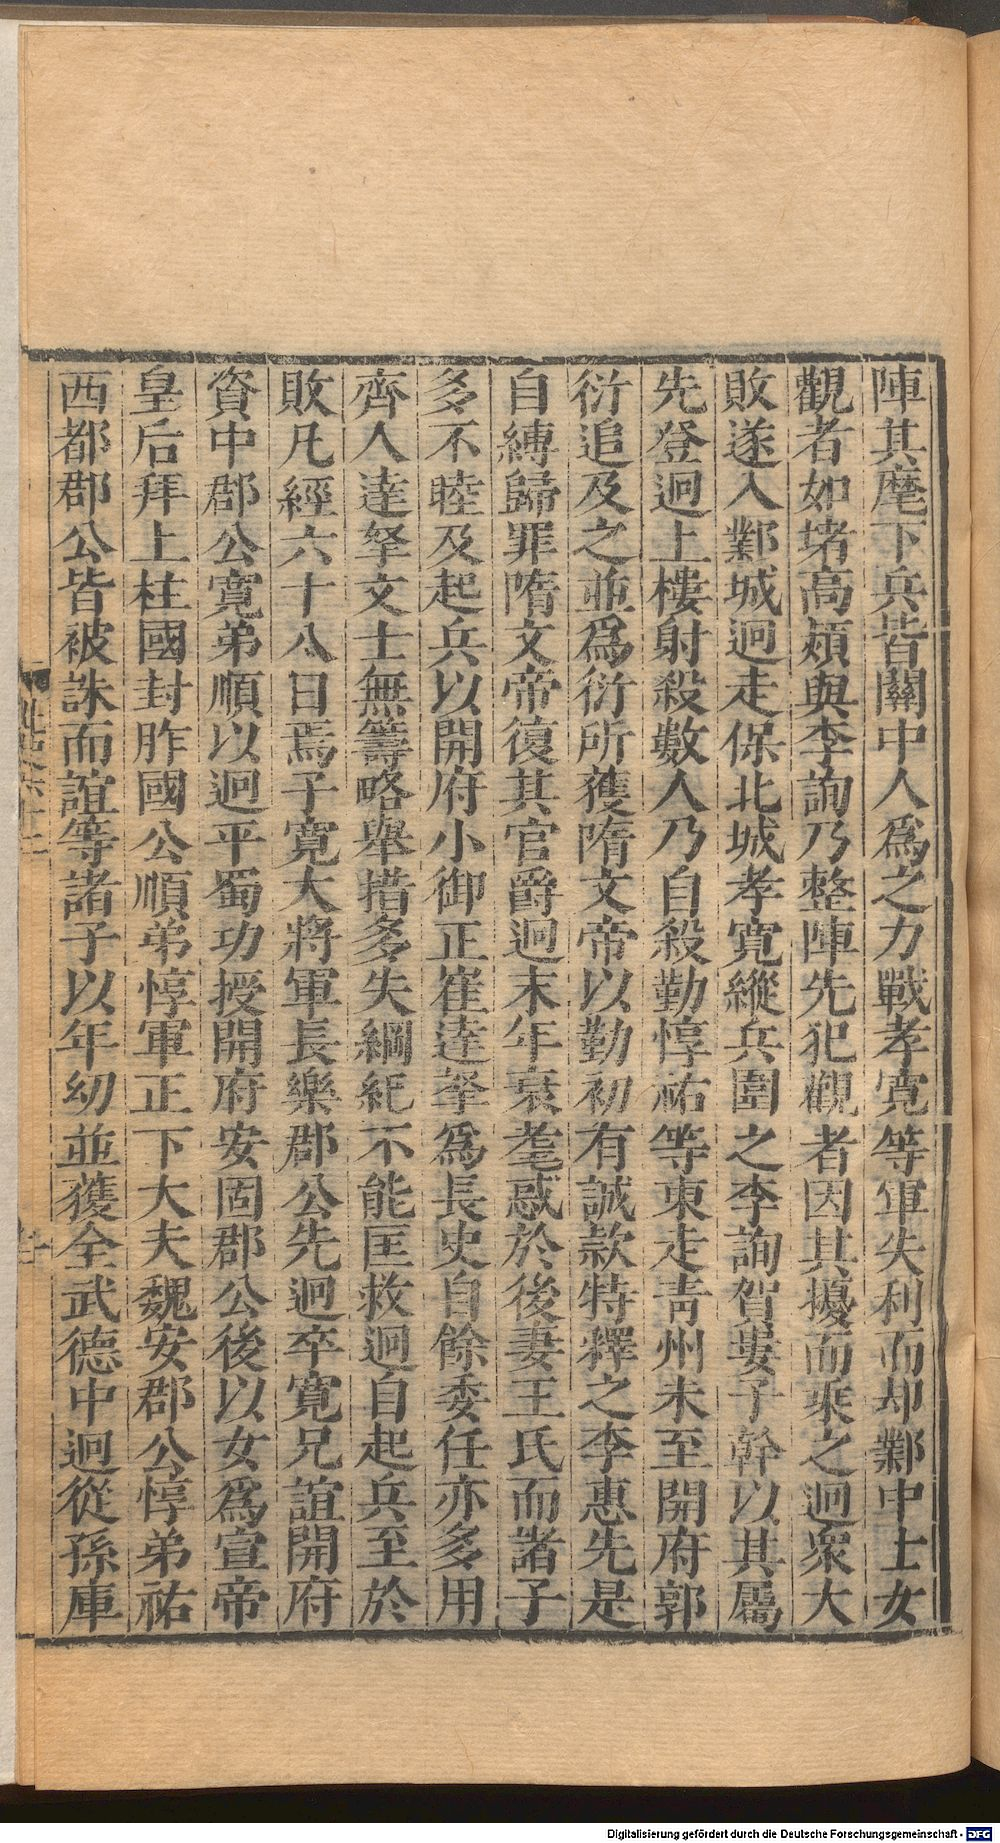 陣其麾下兵皆關中人爲之力戰孝寬等軍失利而却鄴中士女
觀者如堵高熲與李詢乃整陣先犯觀者因其擾而乘之迥衆大
敗遂入鄴城迥走保北城孝寬縱兵圍之李詢賀婁子幹以其屬
先登迥上樓射殺數人乃自殺勤惇祐等東走青州未至開府郭
衍追及之並爲衍所獲隋文帝以勤初有誠款特釋之李惠先是
自縛歸罪隋文帝復其官爵迥末年衰耄惑於後妻王氏而諸子
多不睦及起兵以開府小御正崔達拏爲長史自餘委任亦多用
齊人達拏文士無籌略舉措多失綱紀不能匡救迥自起兵至於
敗凡經六十八日焉子寬大將軍長樂郡公先迥卒寬兄誼開府
資中郡公寬弟順以迥平蜀功授開府安固郡公後以女爲宣帝
皇后拜上柱國封胙國公順弟惇軍正下大夫魏安郡公惇弟祐
西都郡公皆被誅而誼等諸子以年幼並獲全武德中迥從孫庫
Digitalisierung gefördert durch die Deutsche Forschungsgemeinschaft - DFG